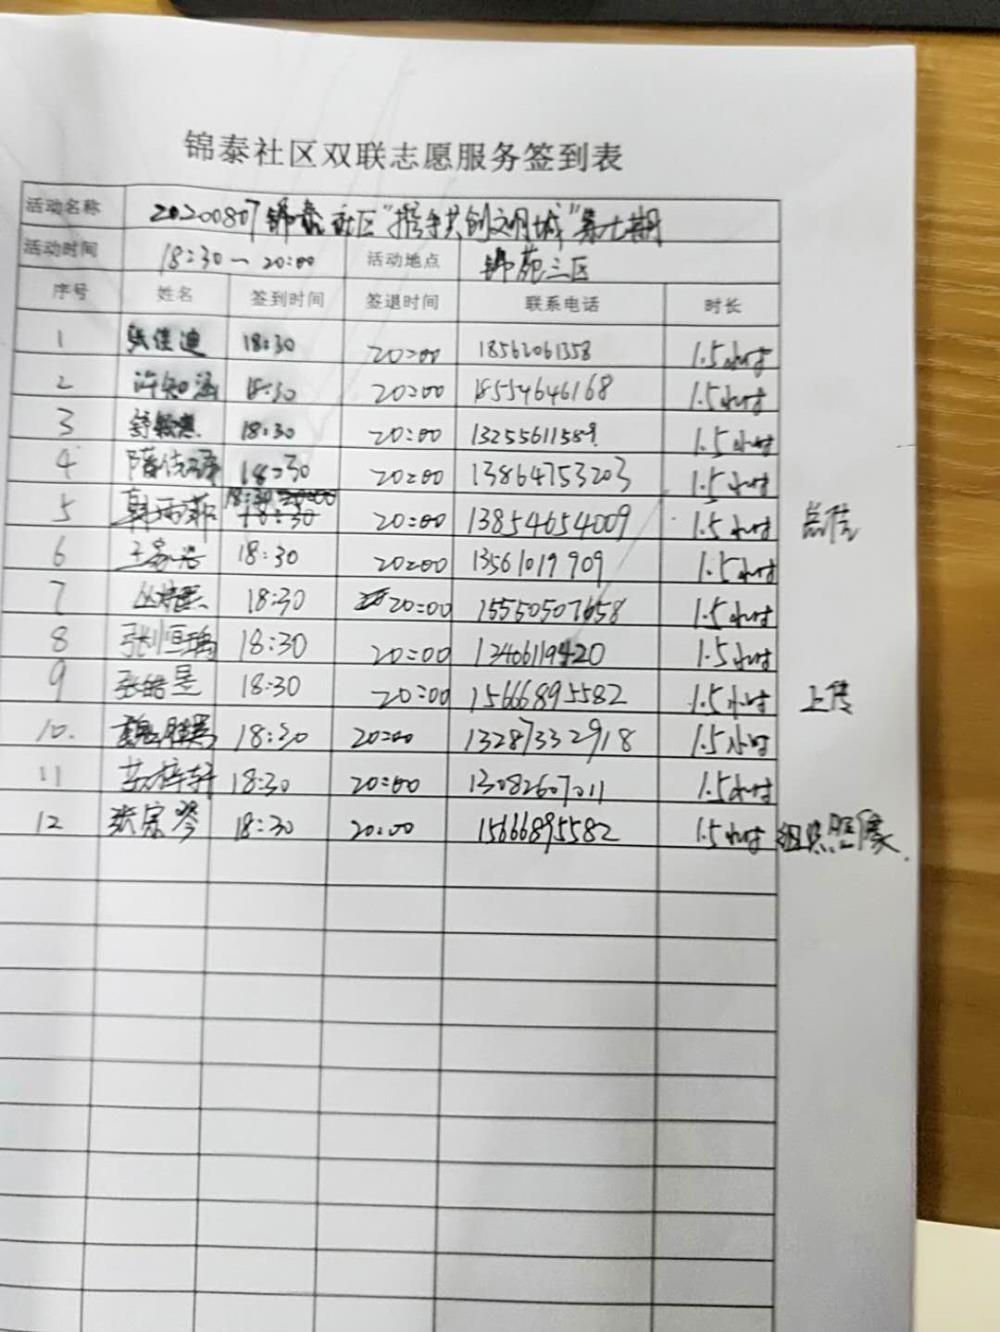 锦泰社区双联志愿服务签到表
活动名称 20200807锦泰社区"携手共创文明城"第七期
活动时间 18:30一20:00 活动地点 锦苑三区
序号 姓名 签到时间 签退时间 联系电话 时长
1 张佳迪 18:30 20:00 18562061358 1.5小时
2 许知涵 18:30 20:00 18554646168 1.5小时
3 18:30 20:00 1.5小时
4 18:30 20:00 13864753203 1.5小时
5 韩雨菲 18:30 20:00 13854654009 1.5小时
6 王家兴 18:30 20:00 13561019909 1.5小时
7 18:30 20:00 15550507658 1.5小时
8 张恒瑀 18:30 20:00 13406119420 1.5小时
9 张皓昱 18:30 20:00 15666895582 1.5小时 上传
10. 18:30 20:00 13287332918 1.5小时
11 18:30 20:00 13082607011 1.5小时
12 张宗琴 18:30 20:00 15666895582 1.5小时